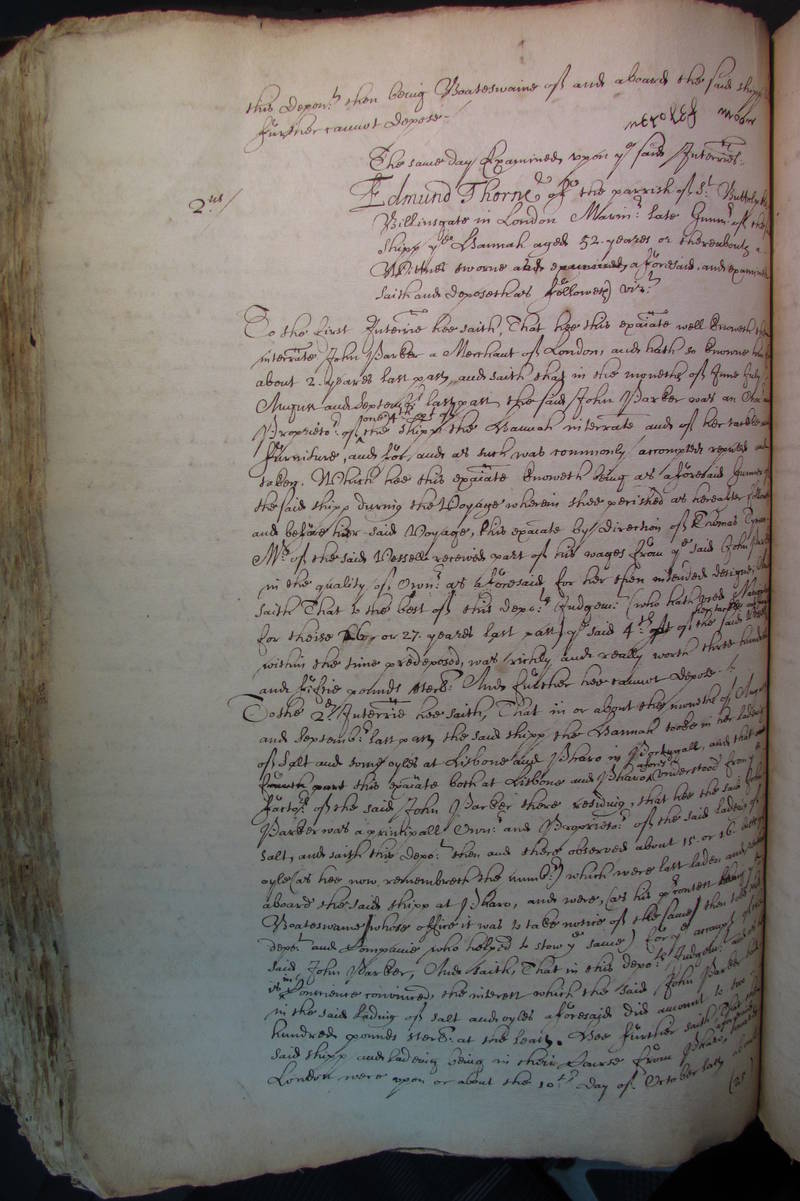 this depon:t then being Boateswaine of and aboard the said shipp
further cannot depose./
The same day Examined upon ye said Interries.
2us/
Edmund Thorne of the parrish of St. Buttolphs
Billinsgate in London Marinr. late Gunnr. of the
shipp ye Hannah aged 52. yeares or thereabouts a
Wittnes sworne and examined aforesaid, and examined
saith and deposeth as followeth vizt.
To the first Interrie hee saith, That hee this exaiate well knoweth the
interrate John Parker a Merchant of London, and hath so knowne him
about 2. yeares last past, and saith that in the moneths of June July
August and September last past the said John Parker was an Owner
one 4th part of
Proprietor. of the shipp the Hannah interrate and of her tackle and
furniture, and for, and as such was commonly accompted reputed and
taken. Which hee this exaiate knoweth being as aforesaid Gunner of
the said shipp during the Voyage wherein shee perished as hereafter followeth
and before her said Voyage, this exaiate by direction of Thomas
Mr. of the said Vessell received part of his wages from ye said John Parker
in the quality of Ownr. as aforesaid for her then intended designe, And
saith That to the best of this depo:ts Judgemt. (who hath used Navigation
for theise 26, or 27. yeares last past) ye said 4th pt of the said Vessell
within the time predeposed, was richly and really worth three hundred
and fiftie pounds sterl: And further hee cannot depose./
To the 2d Interrie hee saith, That in or about the moneths of August
and Septembr. last past the said shipp the Hannah tooke in her lading
of Salt and some oyles at Lisbone and Pharo in Portugall, and that
this exaiate both at Lisbone and Pharo aforesd understood from ye
factor. of the said John Parker there residing, that hee the said John
Parker was a principall Ownr. and Proprietor. of the said lading of
salt, and saith this depo:t then and there observed about 15. or 16.
oyle (as hee now remembreth the numbr.) which were last laden and
aboard the said shipp at Pharo, and were, (as his precontest
Boateswaine (whose office it was to take notice of the same) then told this
depo:t and Companie who helped to stow ye same) for ye accompt of the
said John Parker, And saith, That in this depo:ts Judgmt. and
in
is Conscience convinced the interest which the said John Parker had
in the said lading of salt and oyles aforesaid did amount to two
hundred pounds sterl: at the least. Hee further saith That the
said shipp and lading being in their Course from Pharo aforesaid towards
London were upon or about the 10th day of October last